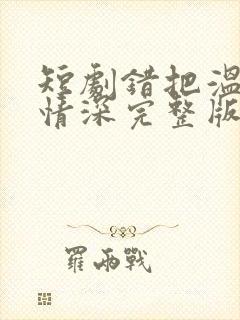 短劇錯把溫
情深完整版
羅兩戰